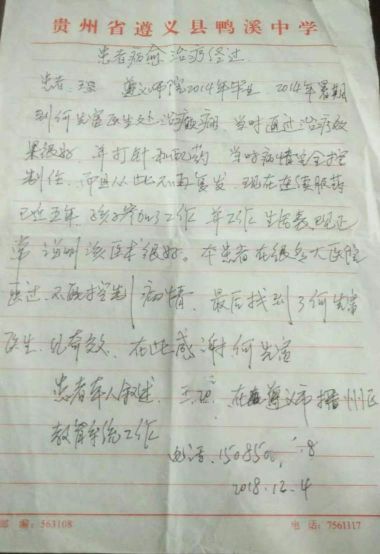 贵州省遵义县鸭溪中学
患者病愈治疗经过
患者 遵义师院2014年毕业 2014年暑期
到何先富医生处治癫痫 当时通过治疗效
果很好，并打针和配药 当时病情完全控
制住，而且从此不再复发，现在连续服药
已近五年，孩子参加了工作，并工作生活表现正
常 说明该医术很好。本患者在很多大医院
医过 不能控制病情，最后找到了何先富
医生，比有效，在此感谢何先富
患者本人叙述，王 在遵义市播州区
教育系统工作
电话：1508500 8
2018.12.4
邮编：563108 电话：7561117